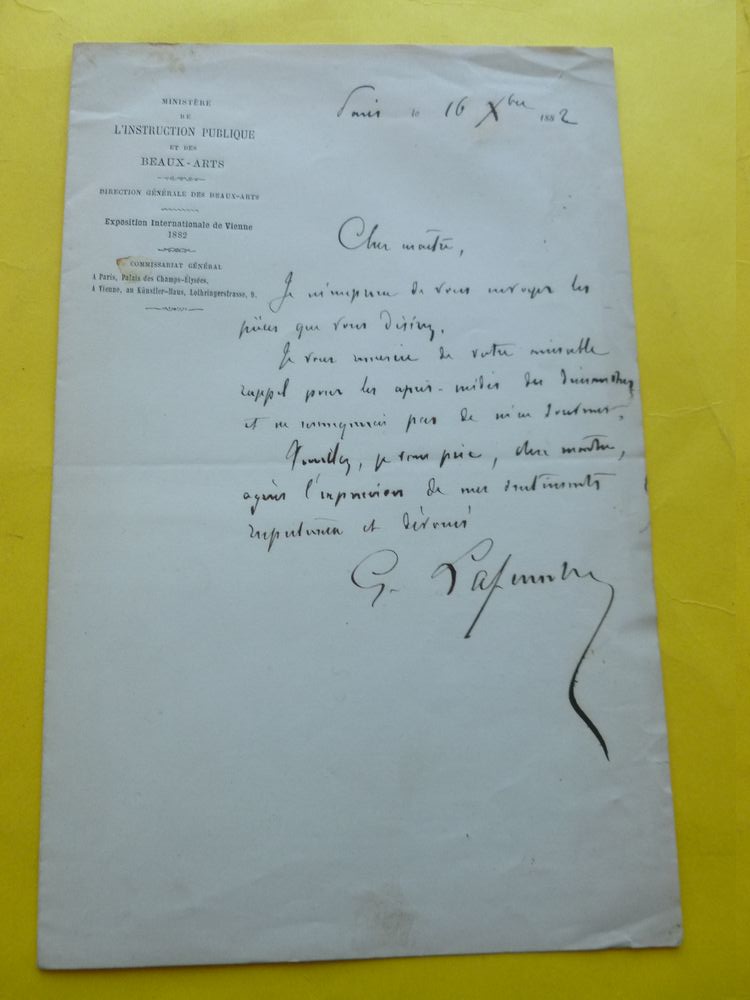 MINISTÈRE
DE
L'INSTRUCTION PUBLIQUE
ET DES
BEAUX-ARTS
DIRECTION GÉNÉRALE DES BEAUX-ARTS
Exposition Internationale de Vienne
1882
COMMISSARIAT GÉNÉRAL
A Paris, Palais des Champs-Élysées,
A Vienne, au Künstler-Haus, Lothringerstrasse, 9.
Paris le 16 Xbre 1882
Cher maître,
Je m'empresse de vous envoyer les
pièces que vous désirez.
Je vous remercie de votre aimable
rappel pour les après-midis du dimanche
et ne manquerai pas de m'en souvenir.
Veuillez, je vous prie, cher maître,
agréer l'expression de mes sentiments
respectueux et dévoués
G. Lafenestre